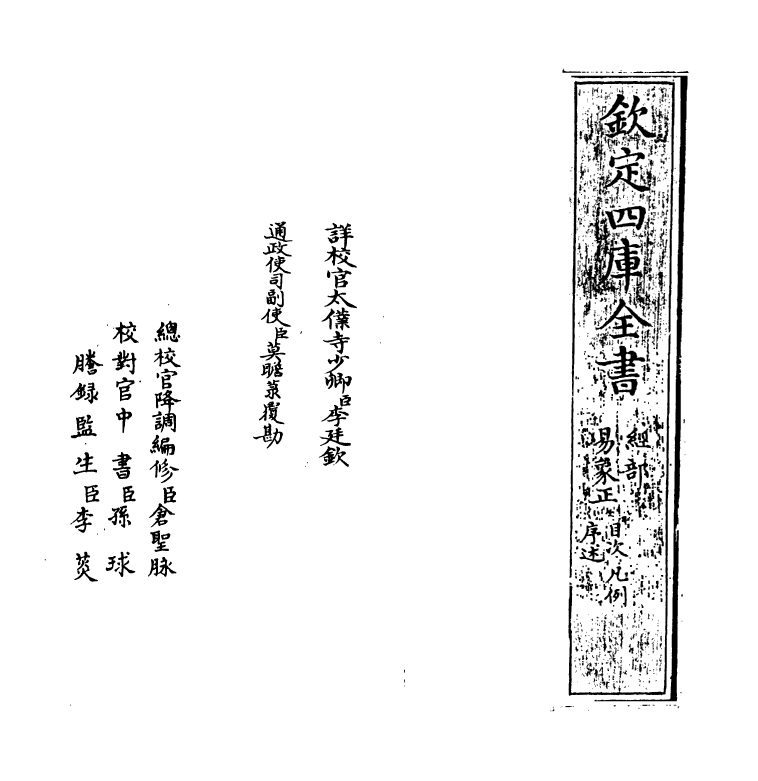 欽定四庫全書
經部
易象正 目次 凡例
序述
詳校官太僕寺少卿臣李廷欽
通政使司副使臣莫瞻菉覆勘
總校官降調編修臣倉聖脉
校對官中書臣孫球
謄錄監生臣李荧